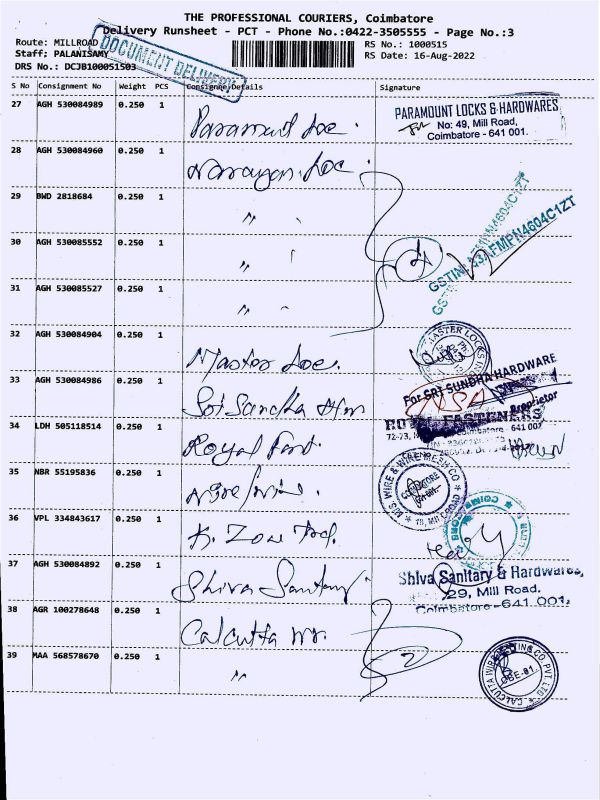 THE PROFESSIONAL COURIERS, Coimbatore
Delivery Runsheet - PCT - Phone No.:0422-3505555 - Page No.:3
Route: MILLROAD
RS No.: 1000515
Staff: PALANISAMY
RS Date: 16-Aug-2022
DRS No.: DCJB100051503
DOCUMENT DELIVERY
S No Consignment No Weight PCS Consignee Details Signature
27 AGH 530084989 0.250 1 Paramount Loc.
PARAMOUNT LOCKS & HARDWARES
No: 49, Mill Road,
Coimbatore - 641 001.
28 AGH 530084960 0.250 1 Narayan Loc.
29 BWD 2818684 0.250 1 "
30 AGH 530085552 0.250 1 "
4
31 AGH 530085527 0.250 1 "
32 AGH 530084904 0.250 1 Master Loc.
MASTER LOCKS
33 AGH 530084986 0.250 1
For SRI SUNDHA HARDWARE
Proprietor
34 LDH 505118514 0.250 1 Royal Fast.
ROYAL FASTENERS
Coimbatore - 641 001
35 NBR 55195836 0.250 1
M/S WIRE & WIREMESH CO
COIMBATORE
36 VPL 334843617 0.250 1 K. Zone
37 AGH 530084892 0.250 1 Shiva Sanitary
Shiva Sanitary & Hardwares,
29, Mill Road.
Coimbatore-641 001.
38 AGR 100278648 0.250 1 Calcutta
2
39 MAA 568578670 0.250 1 "
CBE-01.